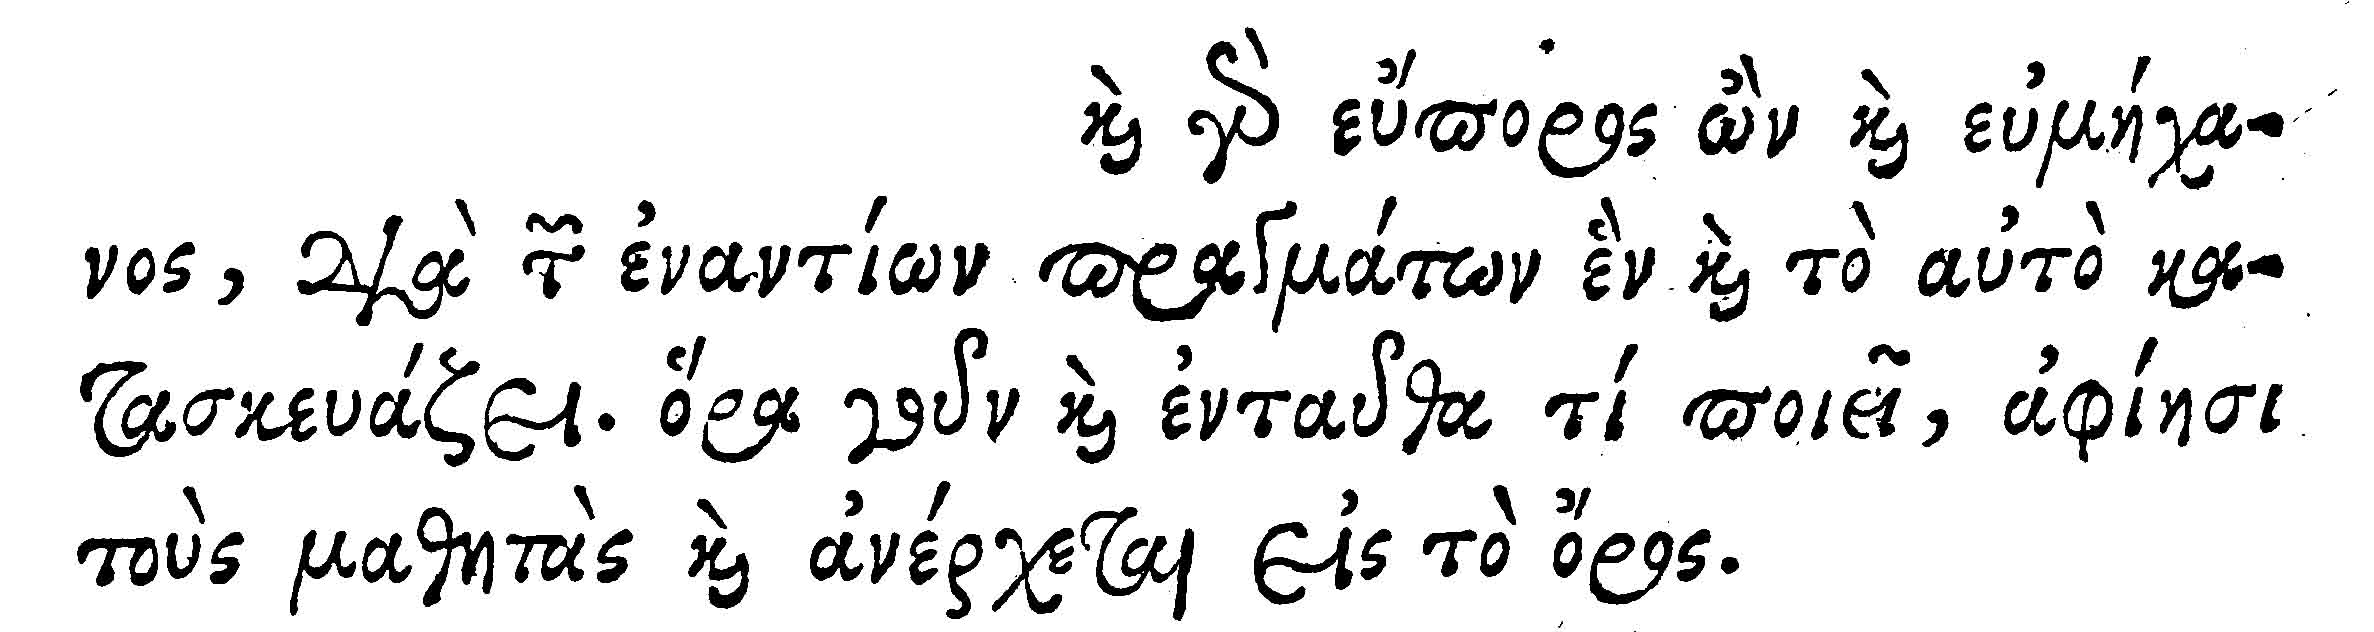 καὶ γὰρ εὔπορος ὢν καὶ εὐμήχα-
νος, διὰ τῶν ἐναντίων πραγμάτων ἓν καὶ τὸ αὐτὸ κα-
τασκευάζει. ὅρα γοῦν καὶ ἐνταῦθα τί ποιεῖ, ἀφίησι
τοὺς μαθητὰς καὶ ἀνέρχεται εἰς τὸ ὄρος.